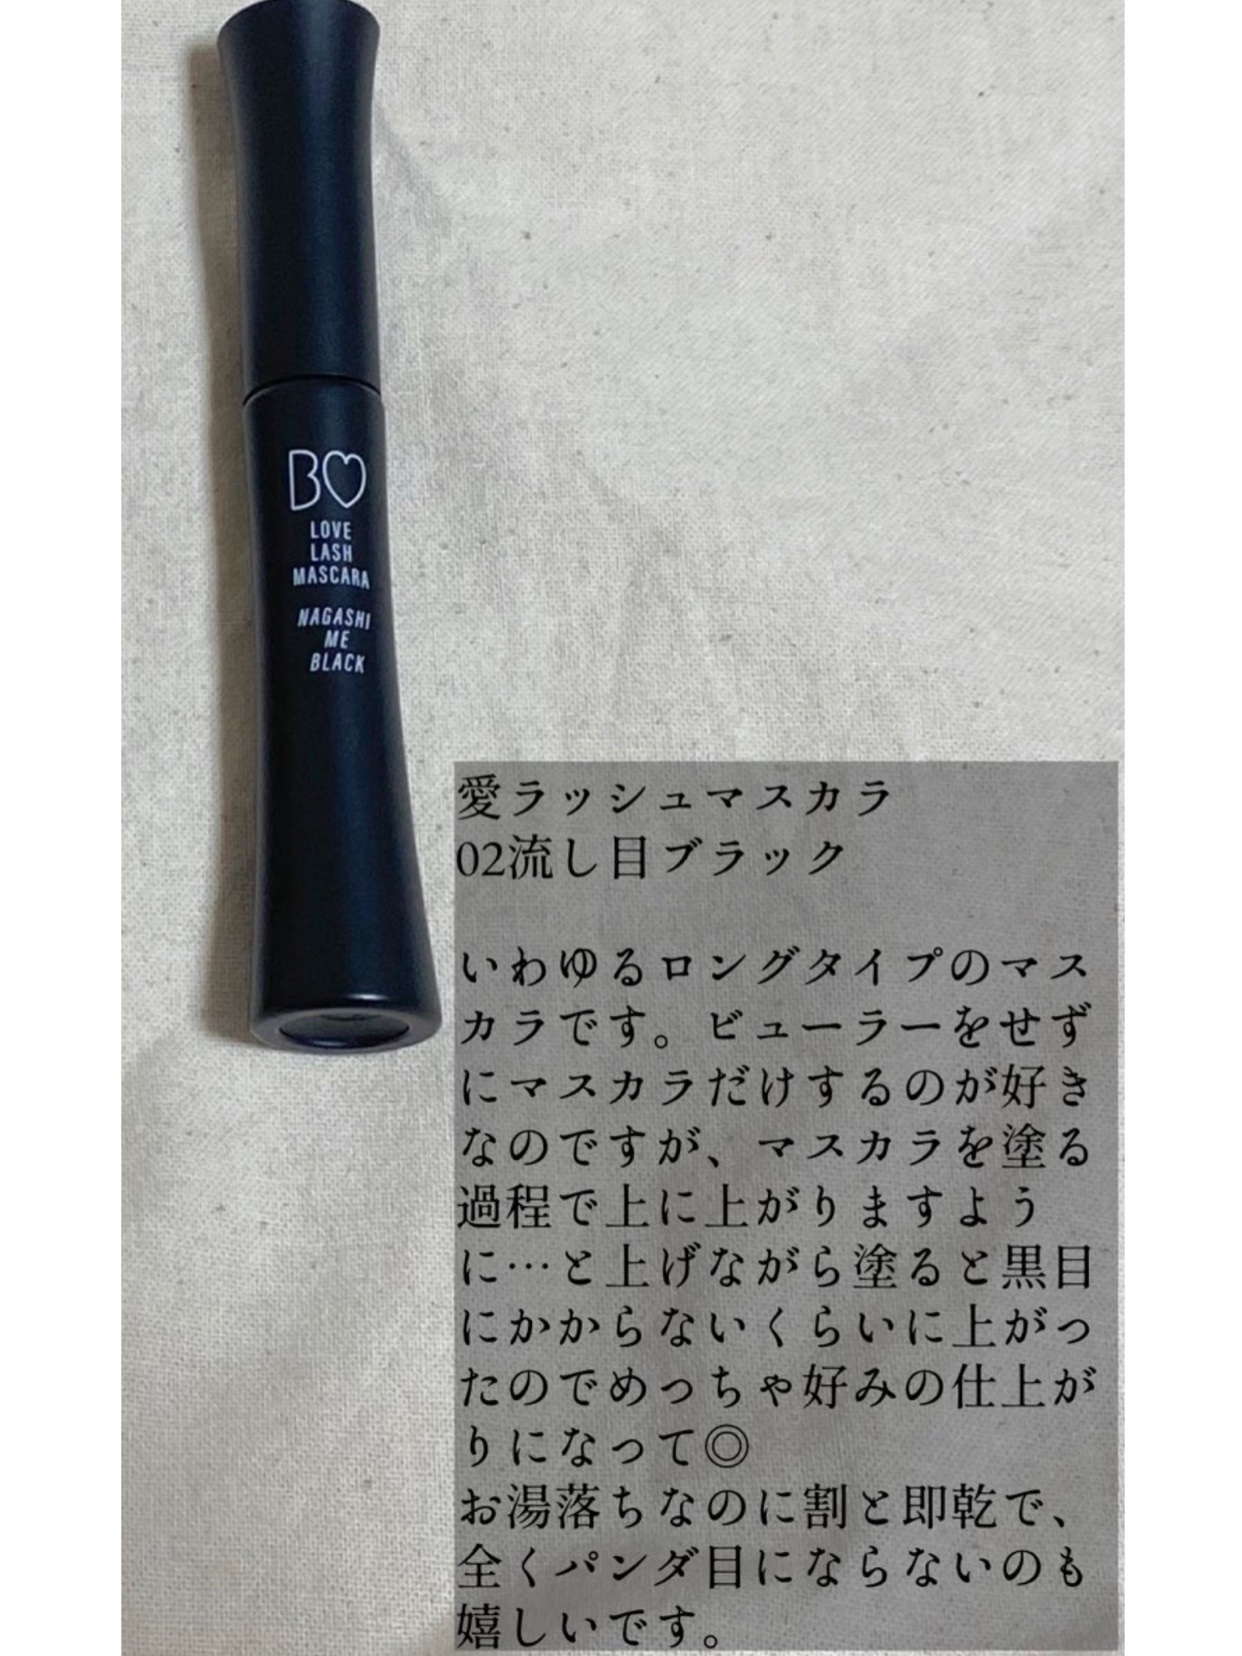 B♡
LOVE
LASH
MASCARA
NAGASHI
ME
BLACK
愛ラッシュマスカラ
02流し目ブラック
いわゆるロングタイプのマス
カラです。ビューラーをせず
にマスカラだけするのが好き
なのですが、マスカラを塗る
過程で上に上がりますよう
に…と上げながら塗ると黒目
にかからないくらいに上がっ
たのでめっちゃ好みの仕上が
りになって◎
お湯落ちなのに割と即乾で、
全くパンダ目にならないのも
嬉しいです。